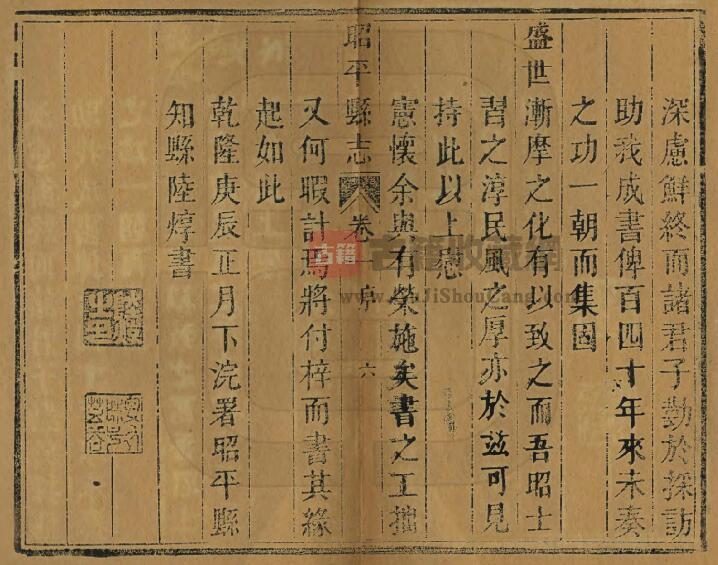 深慮鮮終而諸君子勷於採訪
助我成書俾百四十年來未奏
之功一朝而集固
盛世漸摩之化有以致之而吾昭士
習之淳民風之厚亦於玆可見
持此以上慰
憲懷余與有榮施矣書之工拙
昭平縣志 卷一 序 六
又何暇計焉將付梓而書其緣
起如此
乾隆庚辰正月下浣署昭平縣
知縣陸焞書
古籍
古籍收藏網
www.GuJiShouCang.com